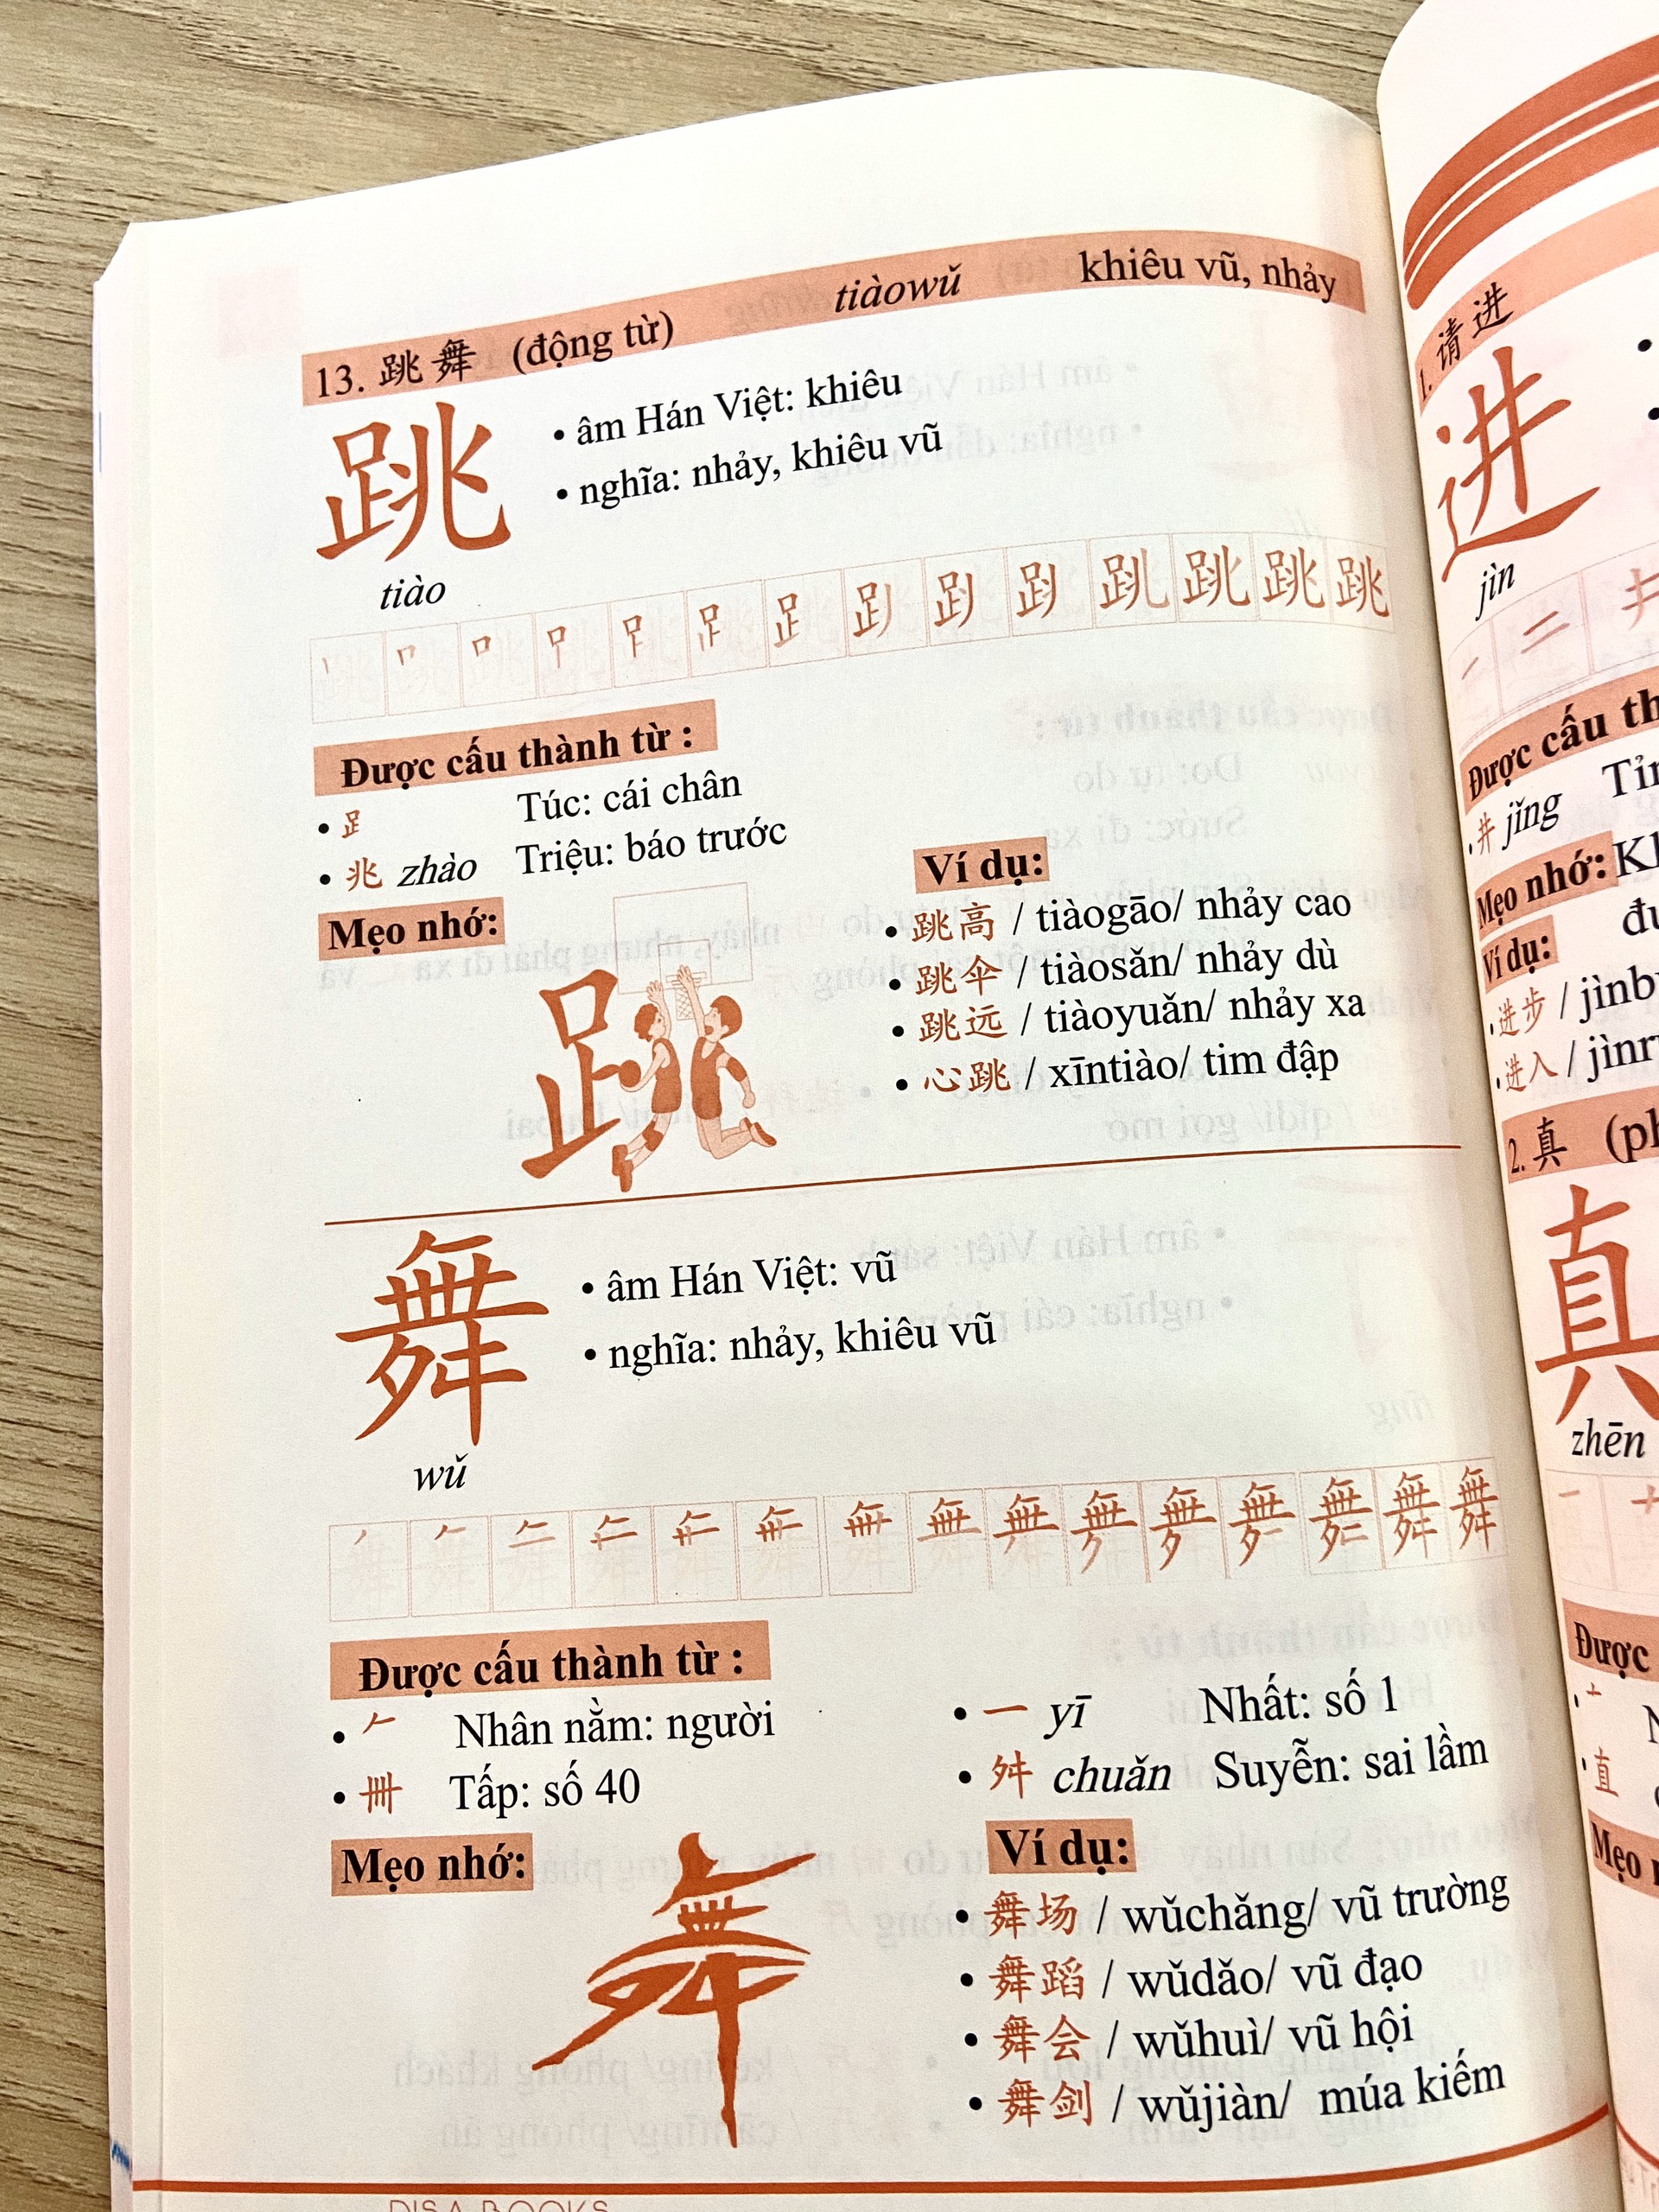 13. 跳舞 (động từ) tiàowǔ khiêu vũ, nhảy
跳
• âm Hán Việt: khiêu
• nghĩa: nhảy, khiêu vũ
tiào
Được cấu thành từ :
• ⻊ Túc: cái chân
• 兆 zhào Triệu: báo trước
Mẹo nhớ:
Ví dụ:
• 跳高 / tiàogāo/ nhảy cao
• 跳伞 / tiàosǎn/ nhảy dù
• 跳远 / tiàoyuǎn/ nhảy xa
• 心跳 / xīntiào/ tim đập
舞
• âm Hán Việt: vũ
• nghĩa: nhảy, khiêu vũ
wǔ
Được cấu thành từ :
• 𠂉 Nhân nằm: người
• 卌 Tấp: số 40
• 一 yī Nhất: số 1
• 舛 chuǎn Suyễn: sai lầm
Mẹo nhớ:
舞
Ví dụ:
• 舞场 / wǔchǎng/ vũ trường
• 舞蹈 / wǔdǎo/ vũ đạo
• 舞会 / wǔhuì/ vũ hội
• 舞剑 / wǔjiàn/ múa kiếm
DISA BOOKS
1. 请进
进
jìn
Được cấu
• 井 jǐng
Mẹo nhớ:
Ví dụ:
• 进步 /
• 进入 /
2. 真
真
zhēn
Được
直
Mẹo